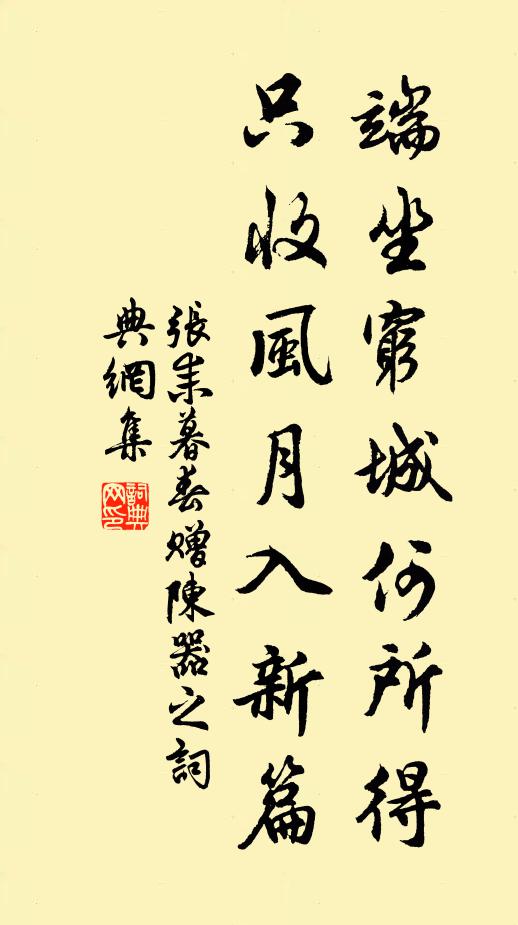 端坐窮城何所得
只收風月入新篇
張耒暮春贈陳器之詞
典網集
詞典
网印